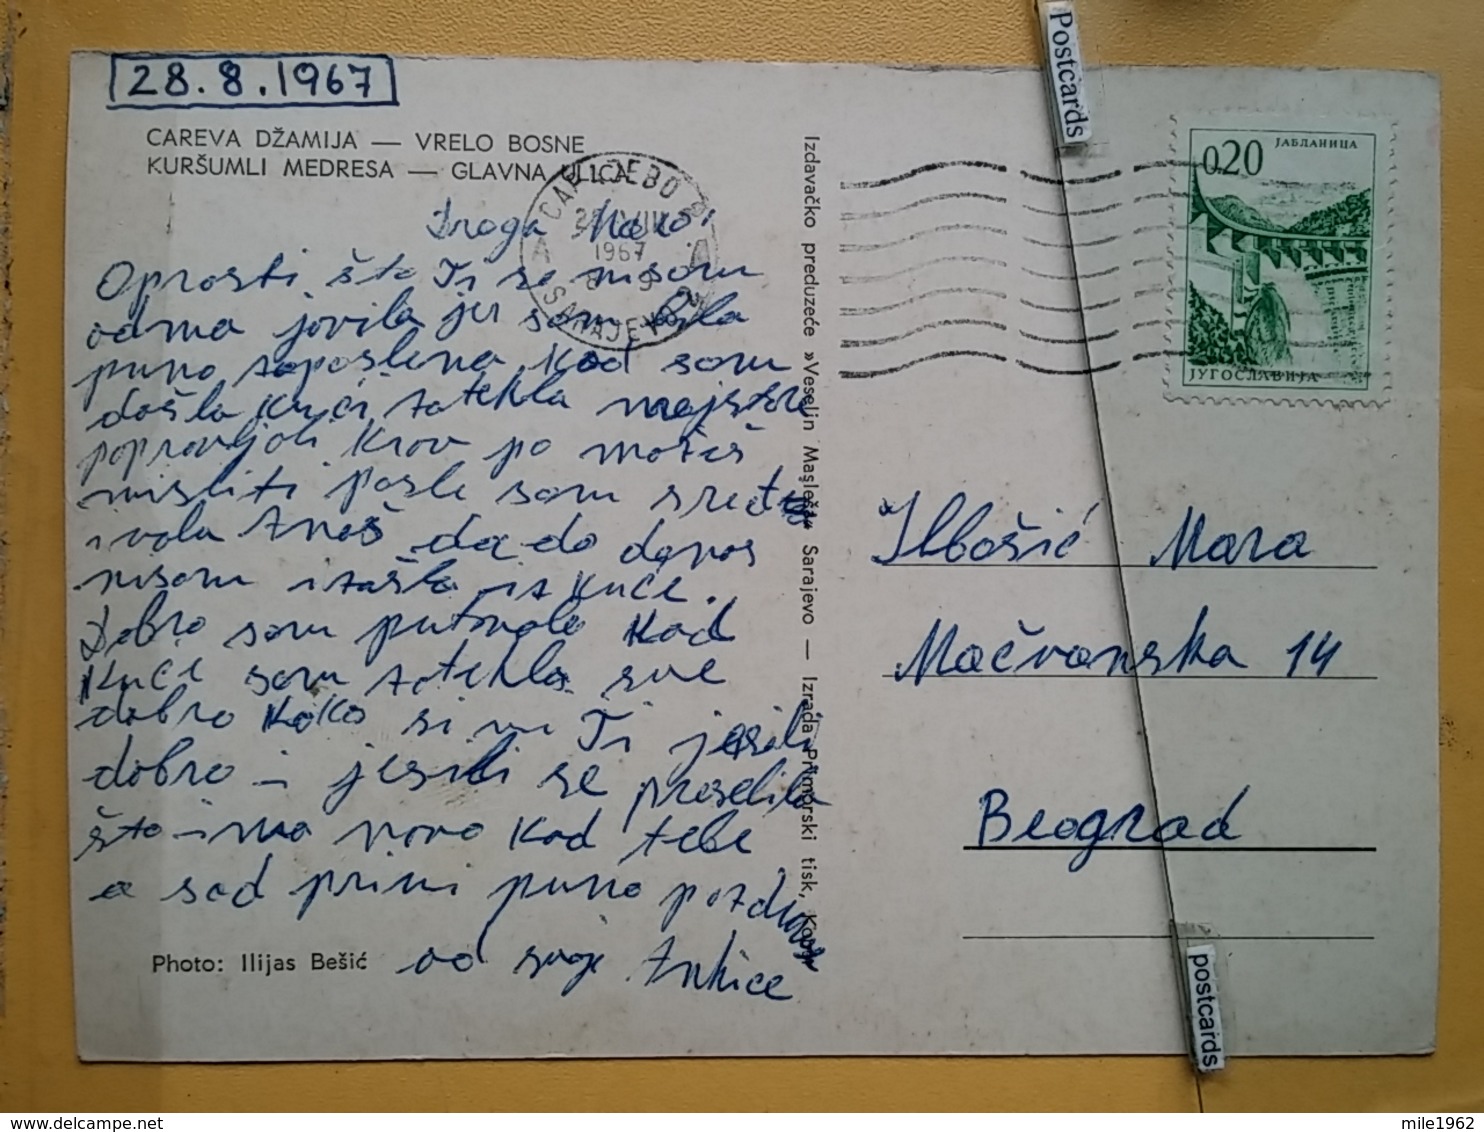 28.8.1967
CAREVA DŽAMIJA — VRELO BOSNE
KURŠUMLI MEDRESA — GLAVNA ULICA
Draga
Oprosti što Ti se nisam
odma jovila jer sam bila
puno zaposlena kod sam
došla kući zatekla majstore
popravljali krov pa možeš
misliti posle sam
i vala znaš da do danas
nisam izašla iz kuće.
Dobro sam putovala kod
kuće sam zatekla sve
dobro kako si mi Ti jesili
dobro i jesili se preselila
što ima novo kod tebe
a sad primi puno pozdrava
od svoje Ankice
Photo: Ilijas Bešić
Izdavačko preduzeće »Veselin Masleša« Sarajevo — Izrada Primorski tisk,
САРАЈЕВО
1967
SARAJEVO
A A
0,20
ЈАБЛАНИЦА
ЈУГОСЛАВИЈА
Mara
Mačvanska 14
Beograd
Postcards
postcards
mile1962